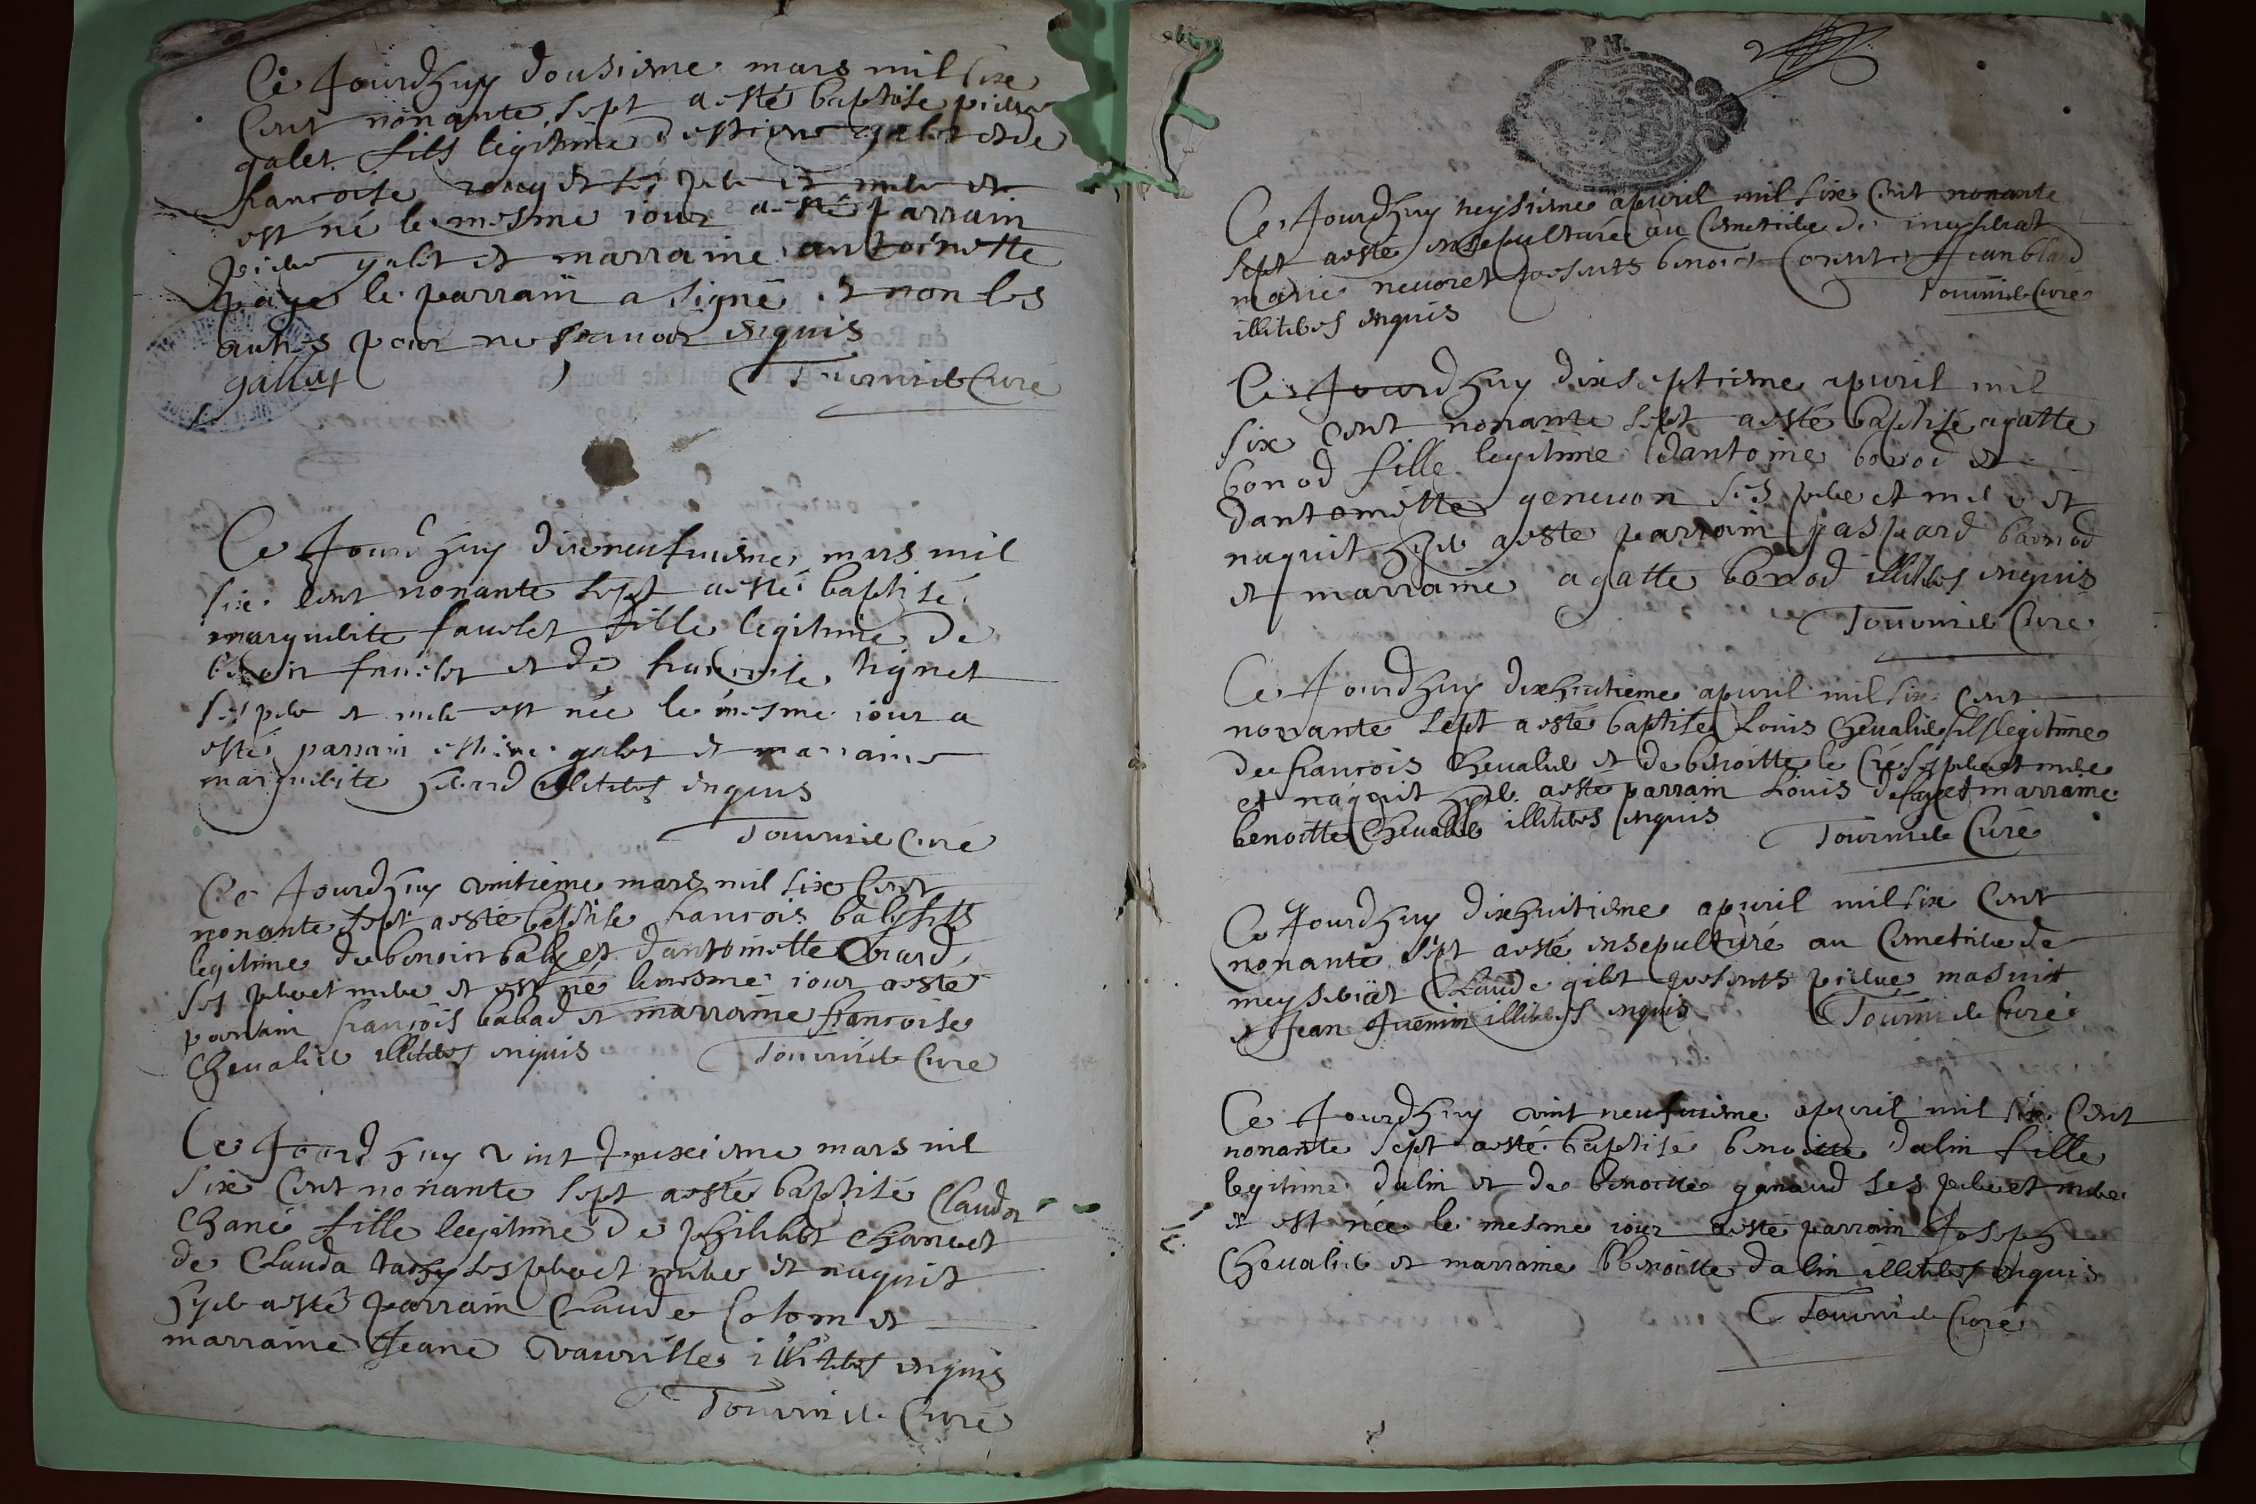 Ce Jourdhuy dousieme mars mil six
Cent nonante sept a esté baptise pierre
galet fils legitime destiene galet et de
francoise ses pere et mere et
est né le mesme iour a esté parrain
pierre galet et marraine antoinette
page le parrain a signé et non les
autres pour ne scauoir enquis
gallet
Tournier Curé
Ce Jourdhuy dixneufuieme mars mil
six cent nonante sept a esté baptisé
marguerite fauelet fille legitime de
benoit fauelet et de francoise tignet
ses pere et mere est née le mesme iour a
esté parrain estiene galet et marraine
marguerite illiteres enquis
Tournier Curé
Ce Jourdhuy vintieme mars mil six Cent
nonante sept a esté baptise francois baly fils
legitime de benoit baly et dantoinette
ses pere et mere et est né le mesme iour a esté
parrain francois babad et marraine francoise
Cheualier illiteres enquis
Tournier Curé
Ce Jourdhuy vint deuxieme mars mil
six Cent nonante sept a esté baptisé Clauda
Chané fille legitime de philibert Chane et
de Clauda ses pere et mere et naquit
hyer a esté parrain Claude Colom et
marraine Jeane illiteres enquis
Tournier Curé
P. M.
Ce Jourdhuy apuril mil six Cent nonante
sept a esté ensepulturé au Cemetiere de meyseriat
marie neuoret presents benoit et Jean
illiteres enquis
Tournier Curé
Ce Jourdhuy dixseptieme apuril mil
six Cent nonante sept a esté baptisé agatte
bonod fille legitime dantoine bonod et
dantoinette geneuon ses pere et mere et
naquit hyer a esté parrain gaspard bonod
et marraine agatte bonod illiteres enquis
Tournier Curé
Ce Jourdhuy dixhuitieme apuril mil six Cent
nonante sept a esté baptisé Louis Cheualier fils legitime
de francois Cheualier et de benoitte ses pere et mere
et naquit hyer a esté parrain Louis et marraine
benoitte Cheualier illiteres enquis
Tournier Curé
Ce Jourdhuy dixhuitieme apuril mil six Cent
nonante sept a esté ensepulturé au Cemetiere de
meyseriat Claude gilet presents pierre masuit
et Jean Juenin illiteres enquis
Tournier Curé
Ce Jourdhuy vint neufuieme apuril mil six Cent
nonante sept a esté baptisé benoitte dalin fille
legitime dalin et de benoitte ganaud ses pere et mere
et est née le mesme iour a esté parrain Joseph
Cheualier et marraine benoitte dalin illiteres enquis
Tournier Curé